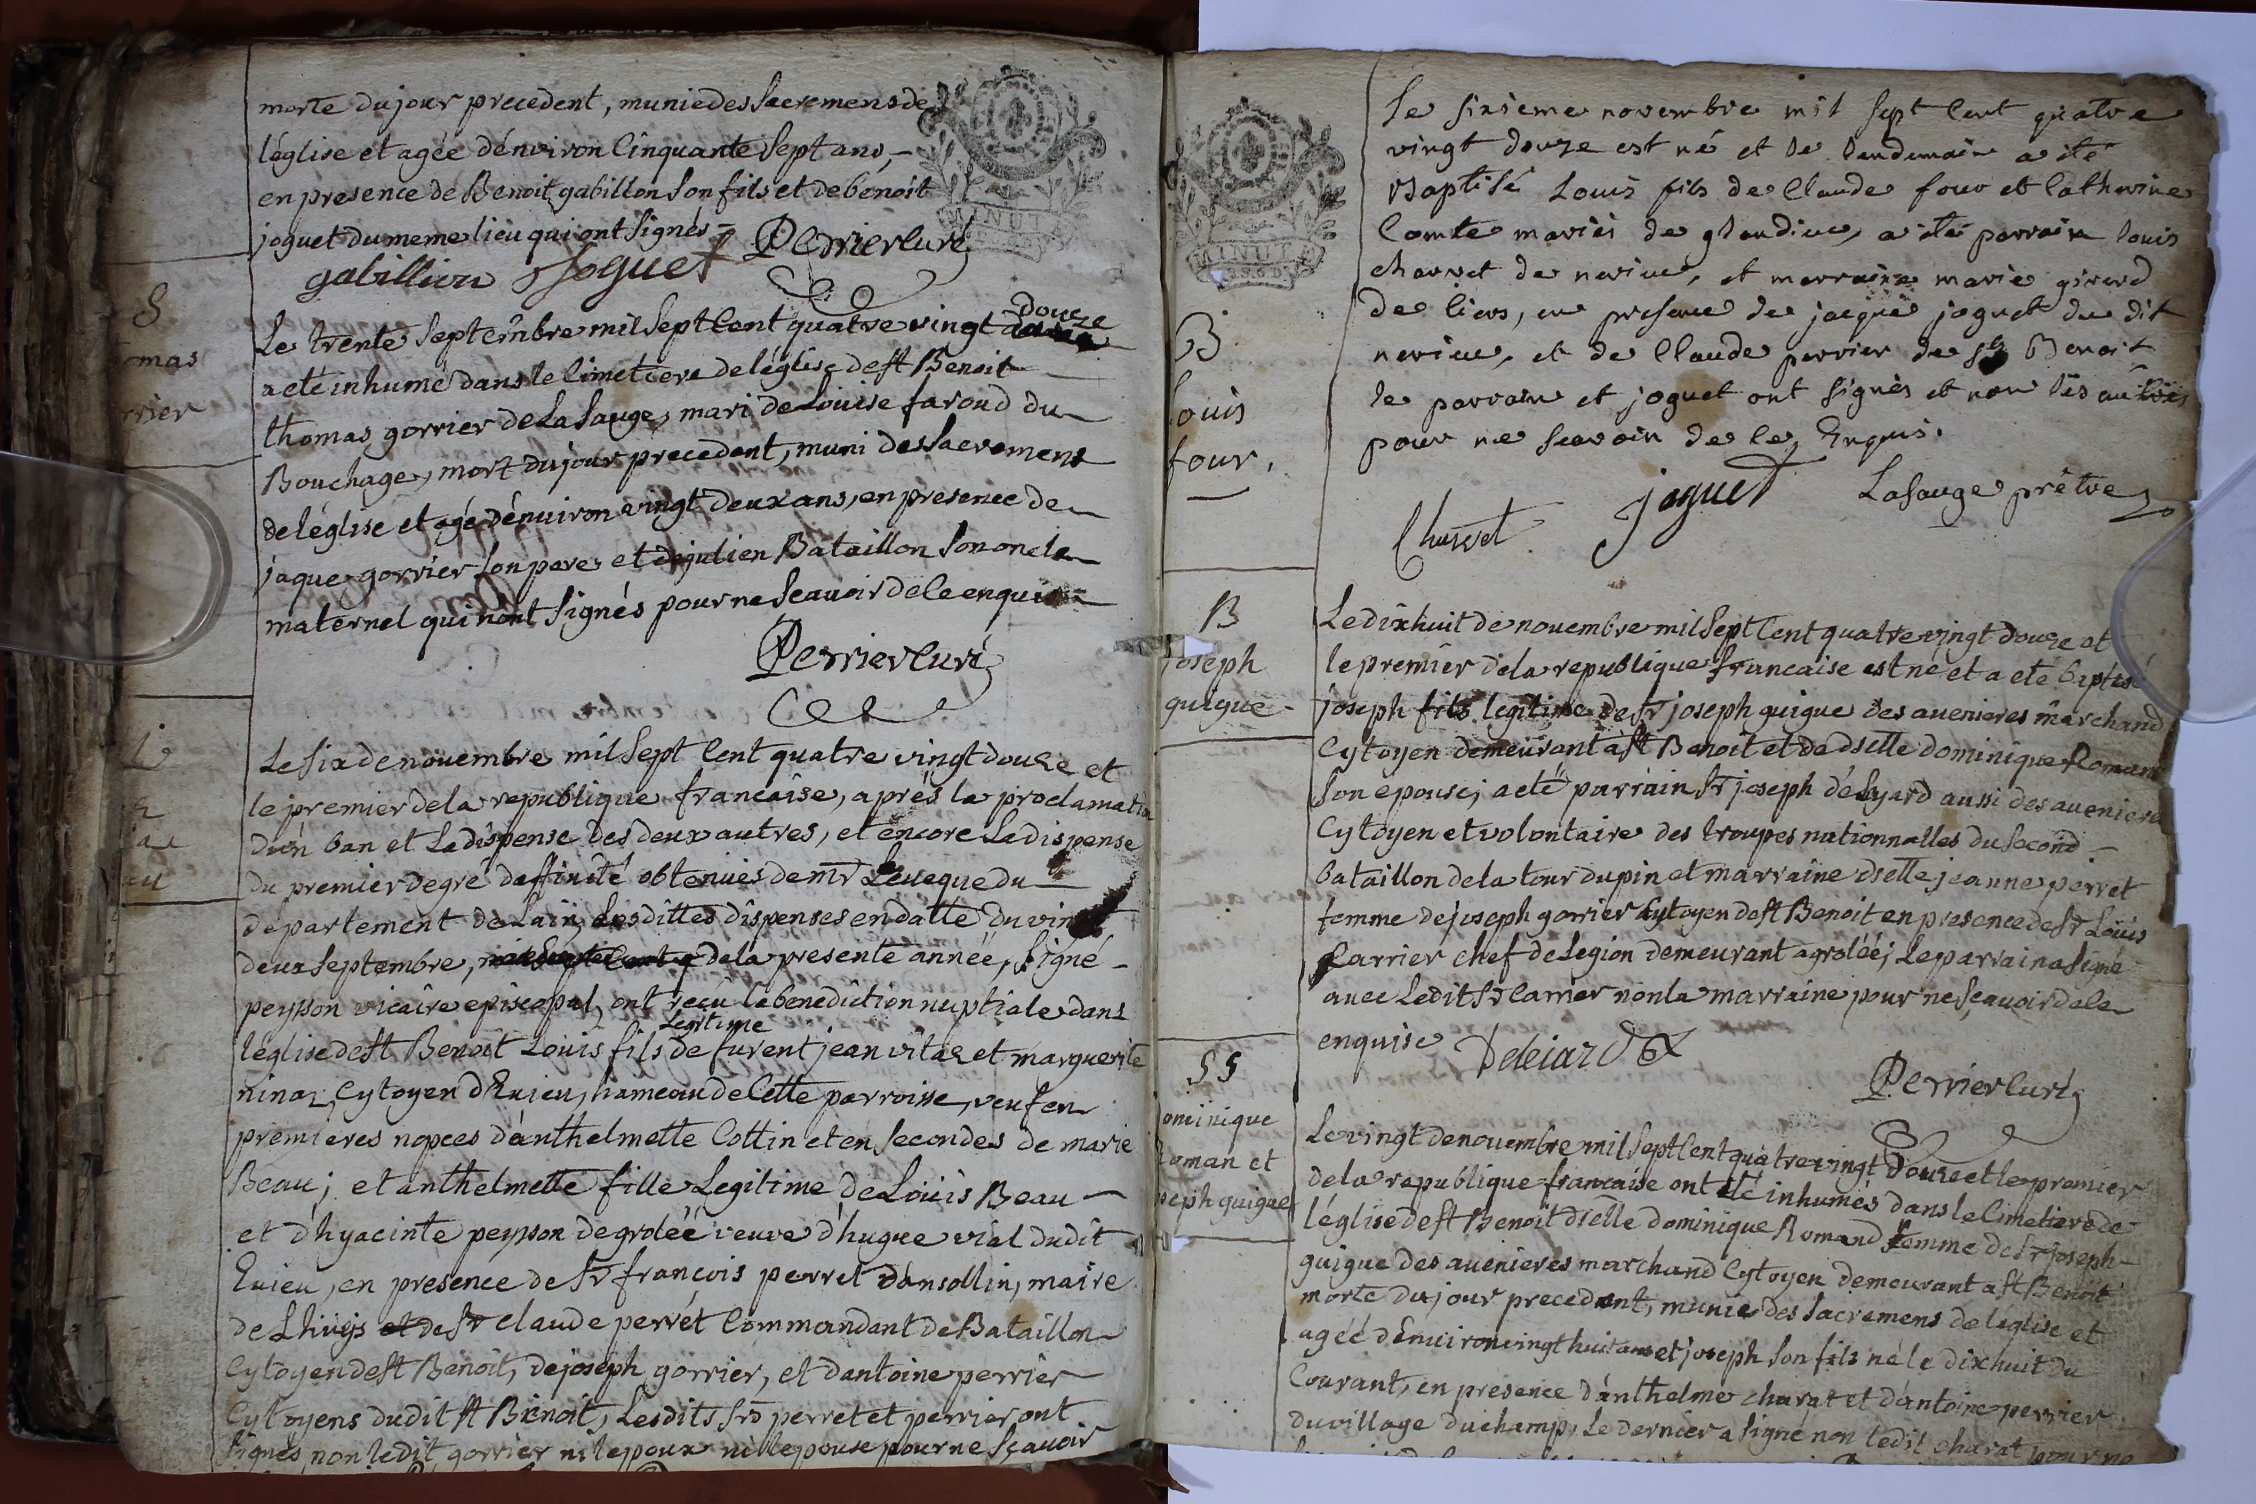 morte du jour precedent, munie des sacremens de
l'église et agée d'environ Cinquante Sept ans, -
en presence de Benoit gabillon son fils et de benoit
joguet du meme lieu qui ont signés -
gabillion Joguet Perrier curé
MINUT
S
omas
rrier
Le trente septembre mil sept Cent quatre vingt douze
a eté inhumé dans le Cimetiere de l'église de st Benoit
thomas gorrier de La Sauge, mari de Louise faroud du
Bouchage, mort du jour precedent, muni des Sacremens
de l'église et agé d'environ vingt deux ans, en presence de
jaque gorrier son pere, et de julien Bataillon son oncle
maternel qui n'ont signés pour ne Scavoir de ce enquis
Perrier curé
Le six de novembre mil sept Cent quatre vingt douze et
le premier de la republique francaise, après la proclamation
d'un ban et La dispense des deux autres, et encore La dispense
du premier degré d'affinité obtenues de mr Leveque du
departement de Lain, Les dittes dispenses en datte du vingt
deux septembre, de la presente année, signé -
peysson vicaire episcopal, ont reçu la benediction nuptiale dans
legitime
l'église de st Benoit Louis fils de furent jean vitaz et marguerite
ninaz, Cytoyen d'Evieu, hameau de Cette parroisse, veuf en
premieres nopces d'anthelmette Cottin et en secondes de marie
Beau; et anthelmette fille Legitime de Loüis Beau -
et d'hyacinte peysson de grolée veuve d'hugue vial dudit
Evieu, en presence de sr françois perret dansollin, maire
de Lhuys et de sr claude perrét Commandant de Bataillon
Cytoyen de st Benoit, de joseph gorrier, et d'antoine perrier
Cytoyens dudit st Benoit, Lesdits srs perret et perrier ont
signés non ledit gorrier ni lepoux ni lepouse pour ne sçavoir
MINUT
B
Louis
four.
Le sixieme novembre mil sept cent quatre
vingt douze est né et le lendemain a été
Baptisé Louis fils de Claude four et Catherine
Comte mariés de glandieu, a été parrain louis
charvet de nerieu, et marraine marie girerd
de liers, en presence de jacque joguet du dit
nerieu, et de Claude perrier de st Benoit
le parrain et joguet ont signés et non les autres
pour ne scavoir de ce Enquis.
Charvet joguet Lasauge prêtre
B
Joseph
guigue
Le dixhuit de novembre mil sept Cent quatre vingt douze et
le premier de la republique francaise est né et a eté baptisé
joseph fils legitime de sr joseph guigue des avenieres marchand
Cytoyen demeurant a st Benoit et de dselle dominique Roman
son epouse; a eté parrain sr joseph déleyard aussi des avenieres
Cytoyen et volontaire des troupes nationnalles du second
bataillon de la tour du pin et marraine dselle jeanne perret
femme de joseph gorrier Cytoyen de st Benoit en presence de sr Loüis
Carrier chef de Legion demeurant a grolée; Le parrain a signé
avec Ledit sr Carrier non la marraine pour ne sçavoir de ce
enquise Deleiard
Perrier curé
SS
ominique
Roman et
oseph guigue
Le vingt de novembre mil sept Cent quatre vingt douze et le premier
de la republique francaise ont été inhumés dans le Cimetiere de
l'église de st Benoit dselle dominique Romand femme de sr joseph
guigue des avenieres marchand Cytoyen demeurant a st Benoit
morte du jour precedent, munie des sacremens de l'église et
agée d'Environ vingt huit ans et joseph son fils né le dixhuit du
Courant, en presence d'anthelme charat et d'antoine perrier
du village du champ, Le dernier a signé non ledit charat pour ne